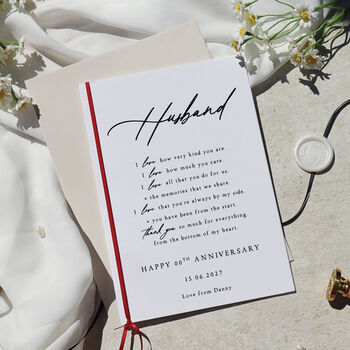 Husband
I love how very kind you are.
I love how much you care.
I love all that you do for us.
+ the memories that we share.
I love that you're always by my side.
+ you have been from the start.
Thank you so much for everything.
from the bottom of my heart.
HAPPY 00TH ANNIVERSARY
15.06.2027
Love from Danny